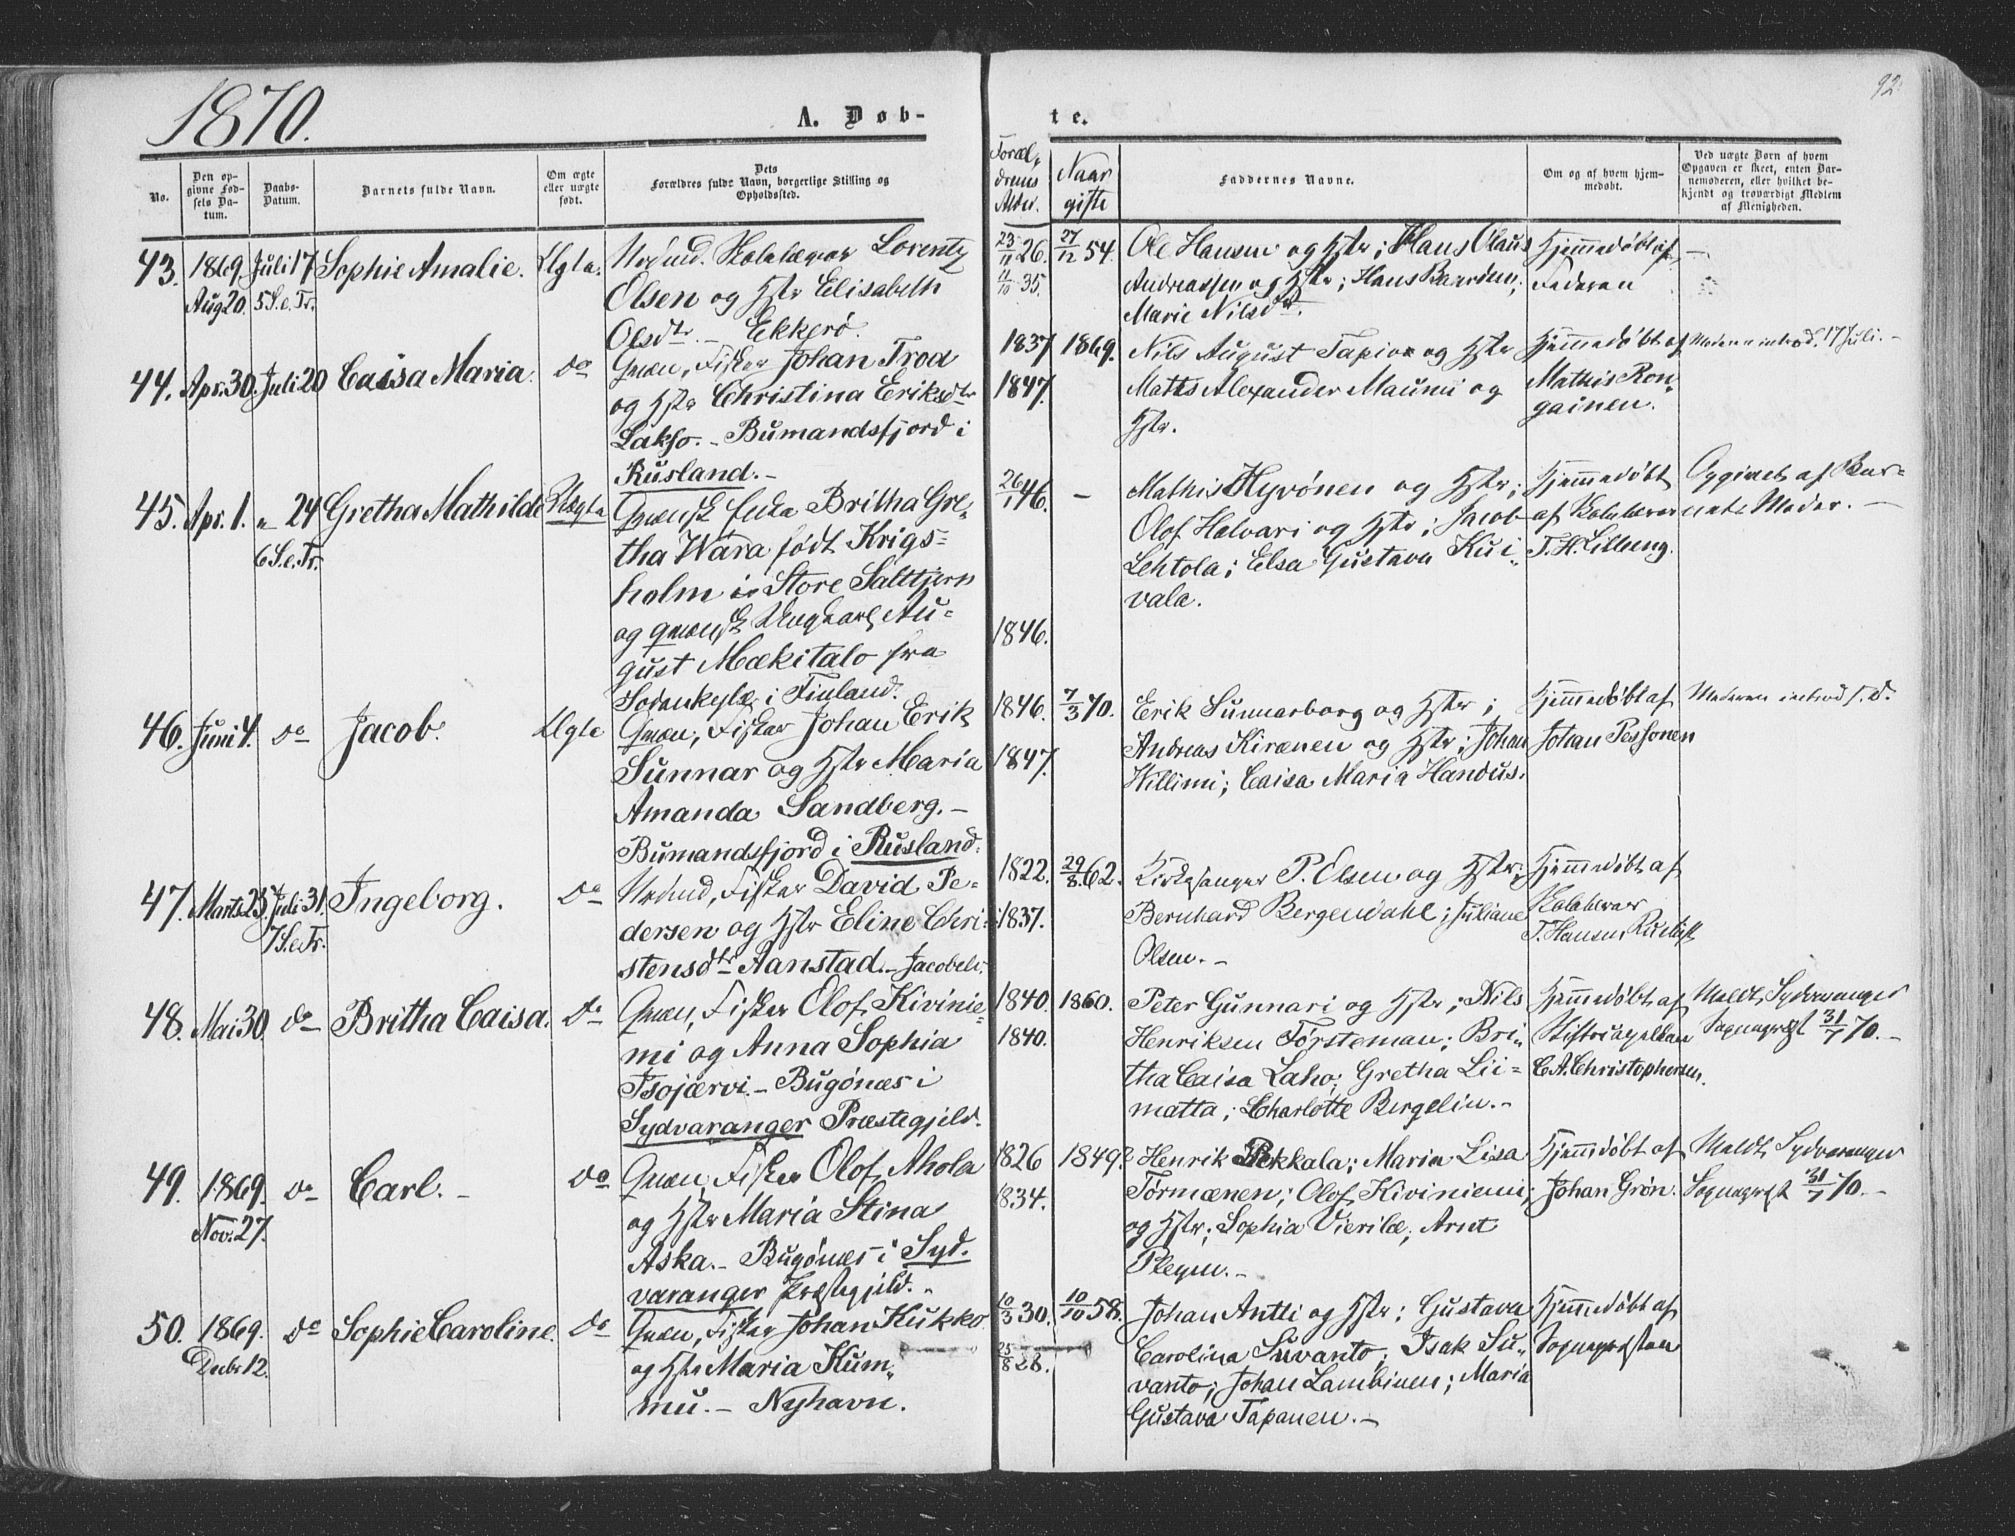 92.
1870.
A. Døb-
te.
No.
Den op-
givne Fød-
sels Da-
tum.
Daabs-
Datum.
Barnets fulde Navn.
Om ægte
eller uægte
født.
Dets
Forældres fulde Navn, borgerlige Stilling og
Opholdssted.
Foræl-
drenes
Alder.
Naar
gifte
Faddernes Navne.
Om og af hvem hjem-
medøbt.
Ved uægte Børn af hvem
Opgaven er skeet, enten Bar-
nemoderen, eller hvilket be-
kjendt og troværdigt Medlem
af Menigheden.
43.
1869
Aug 20.
Juli 17
5 S.e.Tr.
Sophie Amalie.
Ægte.
Lorentz
Olsen og Hstr Elisabeth
Olsdtr. – Ekkerø.
23/11 26.
11/10 35.
27/12 54.
Ole Hansen og Hstr; Hans Olaus
Andreassen og Hstr; Hans Baardsen;
Marie Nilsdtr.
Hjemmedøbt af
Faderen
–
44.
Apr. 30.
Juli 20
Caisa Maria.
do
Qvæn, Fisker Johan Trod
og Hstr Christina Eriksdtr
Lakso. – Bumandsfjord i
Rusland. –
1837
1847.
1869.
Nils August Tapion og Hstr
Matts Alexander Maunu og
Hstr.
Hjemmedøbt af
Mathis Ron-
gainen.
Moderen introd. 17 Juli. –
45.
Apr. 1.
" 24
6 S.e.Tr.
Gretha Mathilde
Uægte
Qvænsk Britha Gre-
tha Wara født Krigs-
holm i Store Salttjern
og qvænsk Ungkarl Au-
gust Mækitalo fra
Sodankylæ i Finland.
26/1 46.
1846.
–
Mathis Hyvönen og Hstr;
Olof Halvari og Hstr; Jacob
Lehtola; Elsa Gustava Kui-
vala.
Hjemmedøbt
af Kolelærer
T. H. Lilleeng.
Opgivet af Bar-
nets Moder. –
46.
Juni 4.
do
Jacob.
Ægte
Qvæn, Fisker Johan Erik
Sunnar og Hstr Maria
Amanda Sandberg. –
Bumandsfjord i Rusland.
1846.
1847.
7/3 70.
Erik Sunnarborg og Hstr;
Andreas Kiranen og Hstr; Johan
Willimi; Caisa Maria Handus.
Hjemmedøbt af
Johan Pessonen
Moderen introd. s. D.
47.
Marts 25
Juli 31.
7 S.e.Tr.
Ingeborg.
do
Fisker David Pe-
dersen og Hstr Eline Chri-
stensdtr Aanstad. – Jacobelv.
1822.
1837.
29/8 62.
Kirkesanger P. Olsen og Hstr;
Bernhard Bergendahl; Juliane
Olsen. –
Hjemmedøbt af
Kolelærer
T. Hansen,
48.
Mai 30.
do
Britha Caisa.
do
Qvæn, Fisker Olof Kivinie-
mi og Anna Sophia
Isojærvi. – Bugönæs i
Sydvaranger Præstegjeld.
1840.
1840.
1860.
Peter Gunnari og Hstr; Nils
Henriksen Försteman; Bri-
tha Caisa Laho; Gretha Lii-
matta; Charlotte Bergelin. –
Hjemmedøbt af
C. A. Christophersen.
Meldt Sydvaranger
Sognepræst 31/7 70. –
49.
1869.
Nov. 27.
do
Carl. –
do
Qvæn, Fisker Olof Ahola
og Hstr Maria Stina
Aska. – Bugönæs i Syd-
varanger Præstegjeld. –
1826
1834.
1849?
Henrik Pekkala; Maria Lisa
Törmænen; Olof Kiviniemi
og Hstr; Sophia Vierilæ; Arnt
Pleyen. –
Hjemmedøbt af
Johan Grön.
Meldt Sydvaranger
Sognepræst 31/7 70. –
50.
1869.
Decbr 12.
do
Sophie Caroline.
do
Qvæn, Fisker Johan Kukko
og Hstr Maria Kum-
mu. – Nyhavn.
10/3 30.
25/8 28.
10/10 58.
Johan Antti og Hstr; Gustava
Carolina Suvanto; Isak Su-
vanto; Johan Lambinen; Maria
Gustava Tapanen. –
Hjemmedøbt af
Sognepræsten